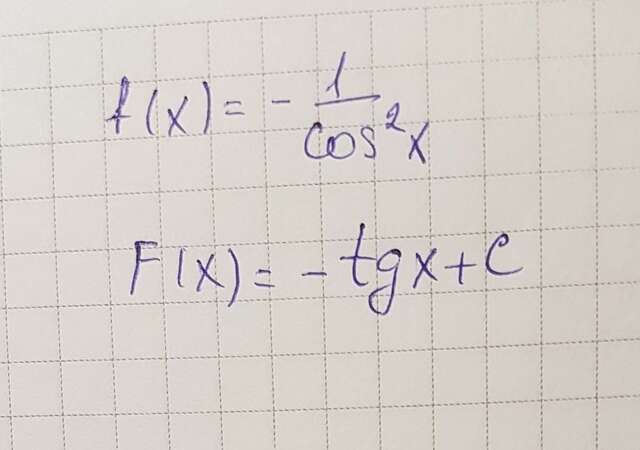 f(x) = - 1/cos²x
F(x) = - tgx + C